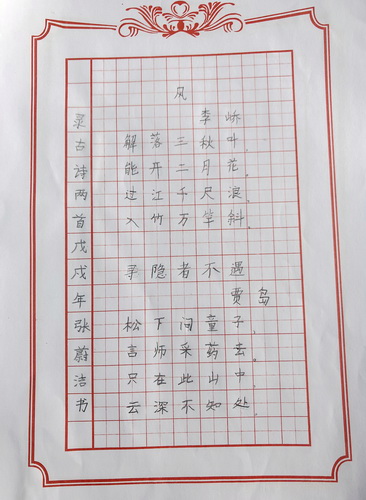 风
李峤
解落三秋叶,
能开二月花。
过江千尺浪,
入竹万竿斜。
寻隐者不遇
贾岛
松下问童子,
言师采药去。
只在此山中,
云深不知处。
录古诗两首戊戌年张蔚洁书